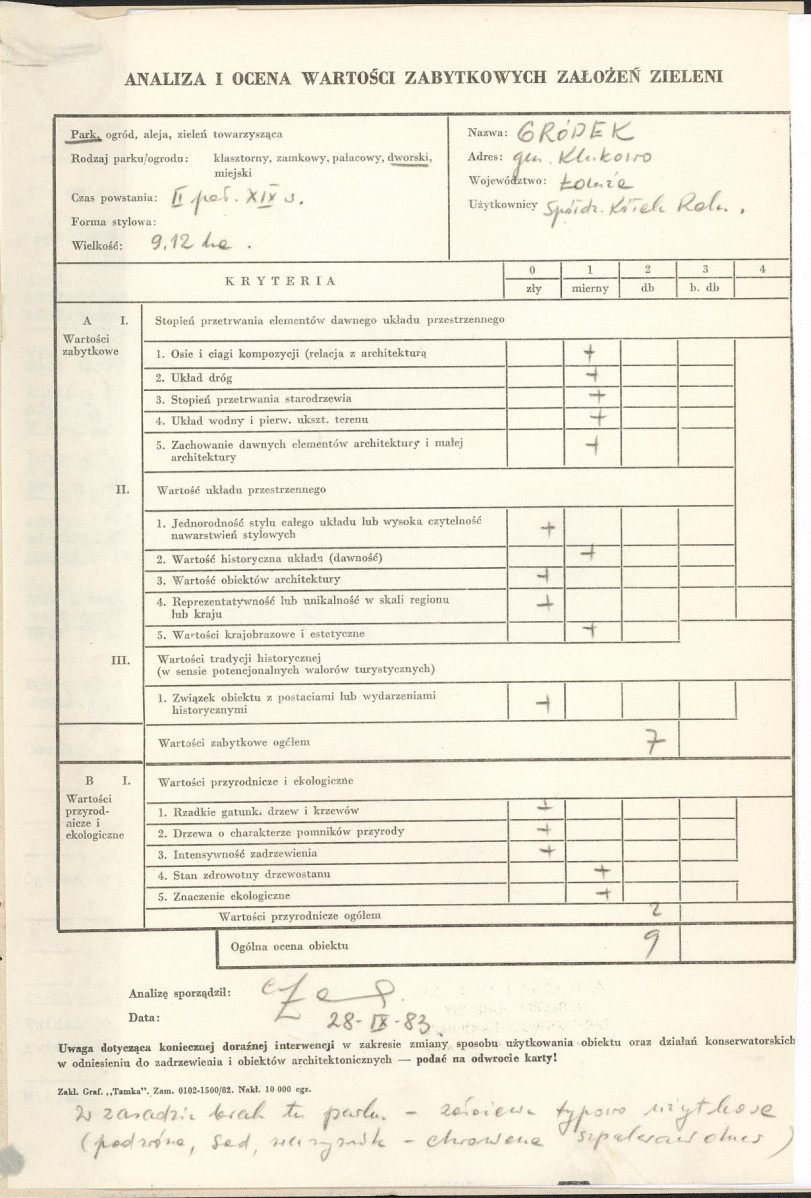 ANALIZA I OCENA WARTOŚCI ZABYTKOWYCH ZAŁOŻEŃ ZIELENI
Park, ogród, aleja, zieleń towarzysząca
Rodzaj parku/ogrodu: klasztorny, zamkowy, pałacowy, dworski,
miejski
Czas powstania: II poł. XIX w.
Forma stylowa:
Wielkość: 9,12 ha.
Nazwa: GRÓDEK
Adres: gm. Klukowo
Województwo: Łomża
Użytkownicy Spółdz. Kółek Roln.
KRYTERIA
0 1 2 3 4
zły mierny db b. db
A I. Stopień przetrwania elementów dawnego układu przestrzennego
Wartości
zabytkowe
1. Osie i ciągi kompozycji (relacja z architekturą +
2. Układ dróg +
3. Stopień przetrwania starodrzewia +
4. Układ wodny i pierw. ukszt. terenu +
5. Zachowanie dawnych elementów architektury i małej +
architektury
II. Wartość układu przestrzennego
1. Jednorodność stylu całego układu lub wysoka czytelność +
nawarstwień stylowych
2. Wartość historyczna układu (dawność) +
3. Wartość obiektów architektury +
4. Reprezentatywność lub unikalność w skali regionu +
lub kraju
5. Wartości krajobrazowe i estetyczne +
III. Wartości tradycji historycznej
(w sensie potencjonalnych walorów turystycznych)
1. Związek obiektu z postaciami lub wydarzeniami +
historycznymi
Wartości zabytkowe ogółem 7
B I. Wartości przyrodnicze i ekologiczne
Wartości
przyrod-
nicze i
ekologiczne
1. Rzadkie gatunki drzew i krzewów +
2. Drzewa o charakterze pomników przyrody +
3. Intensywność zadrzewienia +
4. Stan zdrowotny drzewostanu +
5. Znaczenie ekologiczne +
Wartości przyrodnicze ogółem 2
Ogólna ocena obiektu 9
Analizę sporządził:
Data: 28-IX-83.
Uwaga dotycząca koniecznej doraźnej interwencji w zakresie zmiany sposobu użytkowania obiektu oraz działań konserwatorskich
w odniesieniu do zadrzewienia i obiektów architektonicznych — podać na odwrocie karty!
Zakł. Graf. „Tamka". Zam. 0102-1500/82. Nakł. 10 000 egz.
W zasadzie brak tu parku - typowo użytkowe
(podwórze, sad, warzywnik - )